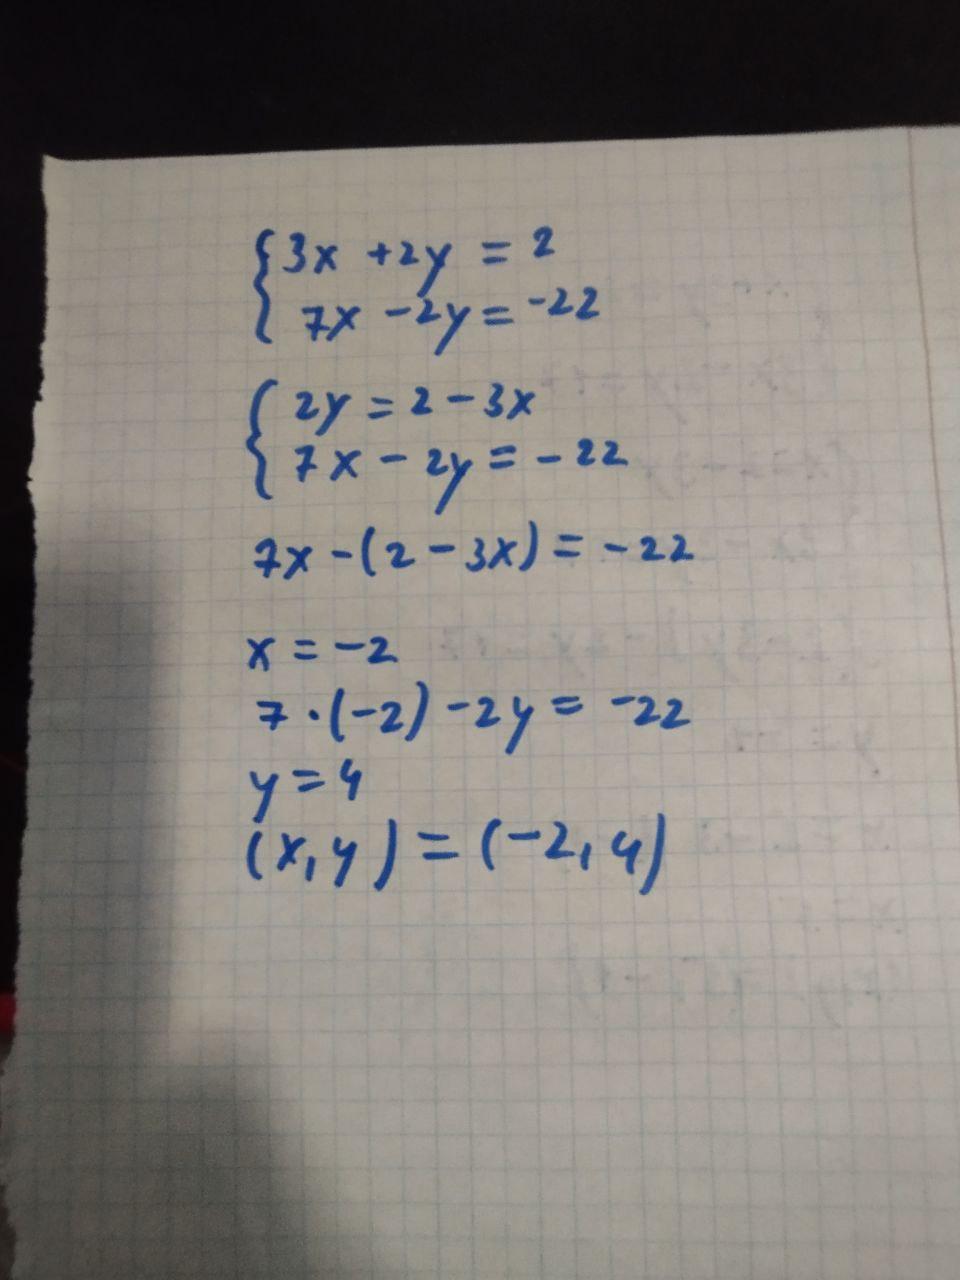 {3x +2y = 2
7x -2y = -22
{2y = 2 - 3x
7x - 2y = - 22
7x - (2 - 3x) = - 22
x = -2
7 · (-2) - 2y = -22
y = 4
(x, y) = (-2, 4)